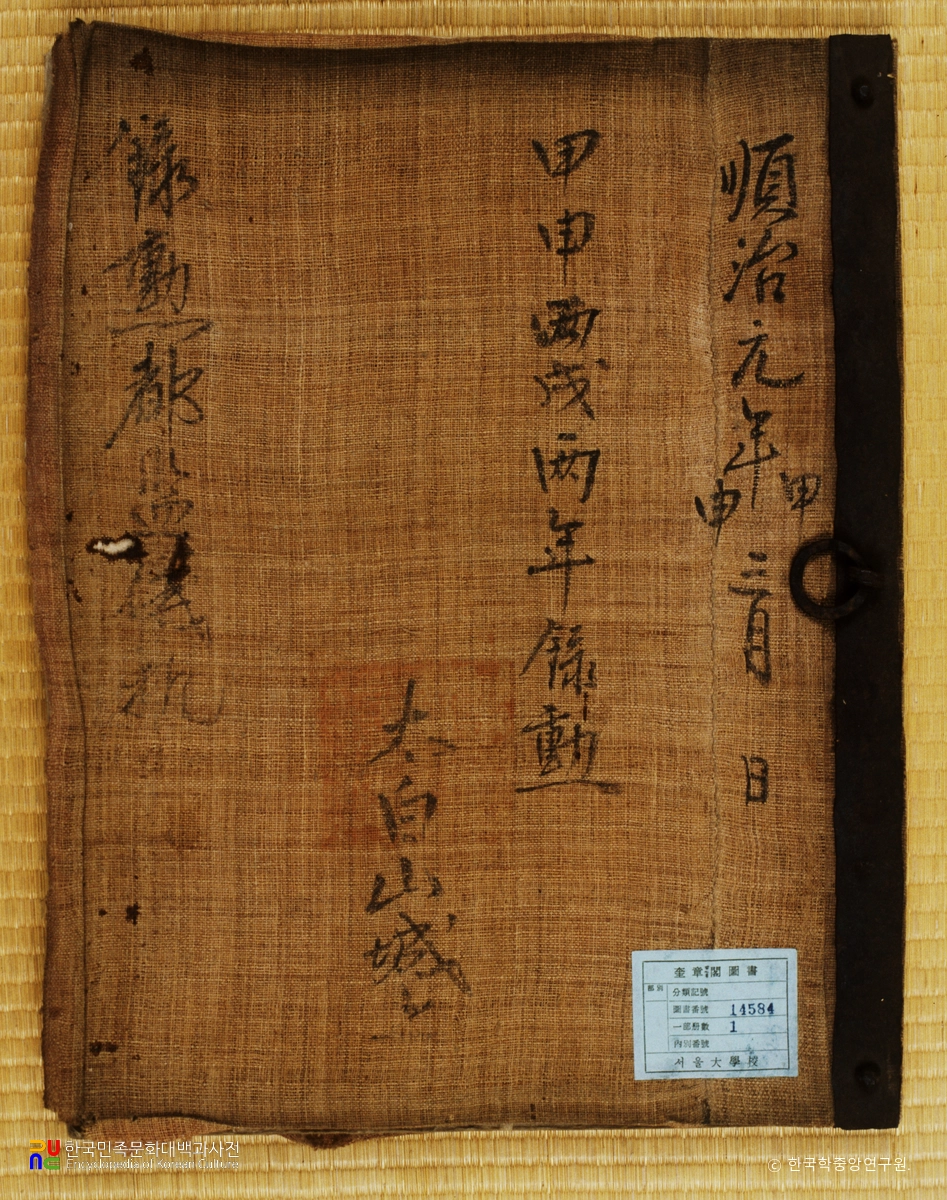 順治元年甲申三月 日
甲申丙戌兩年錄勳
太白山城上
錄勳都監儀軌
奎章閣圖書
部別
分類記號
圖書番號 14584
一部冊數 1
內別番號
서울大學校
한국민족문화대백과사전
Encyclopedia of Korean Culture
© 한국학중앙연구원